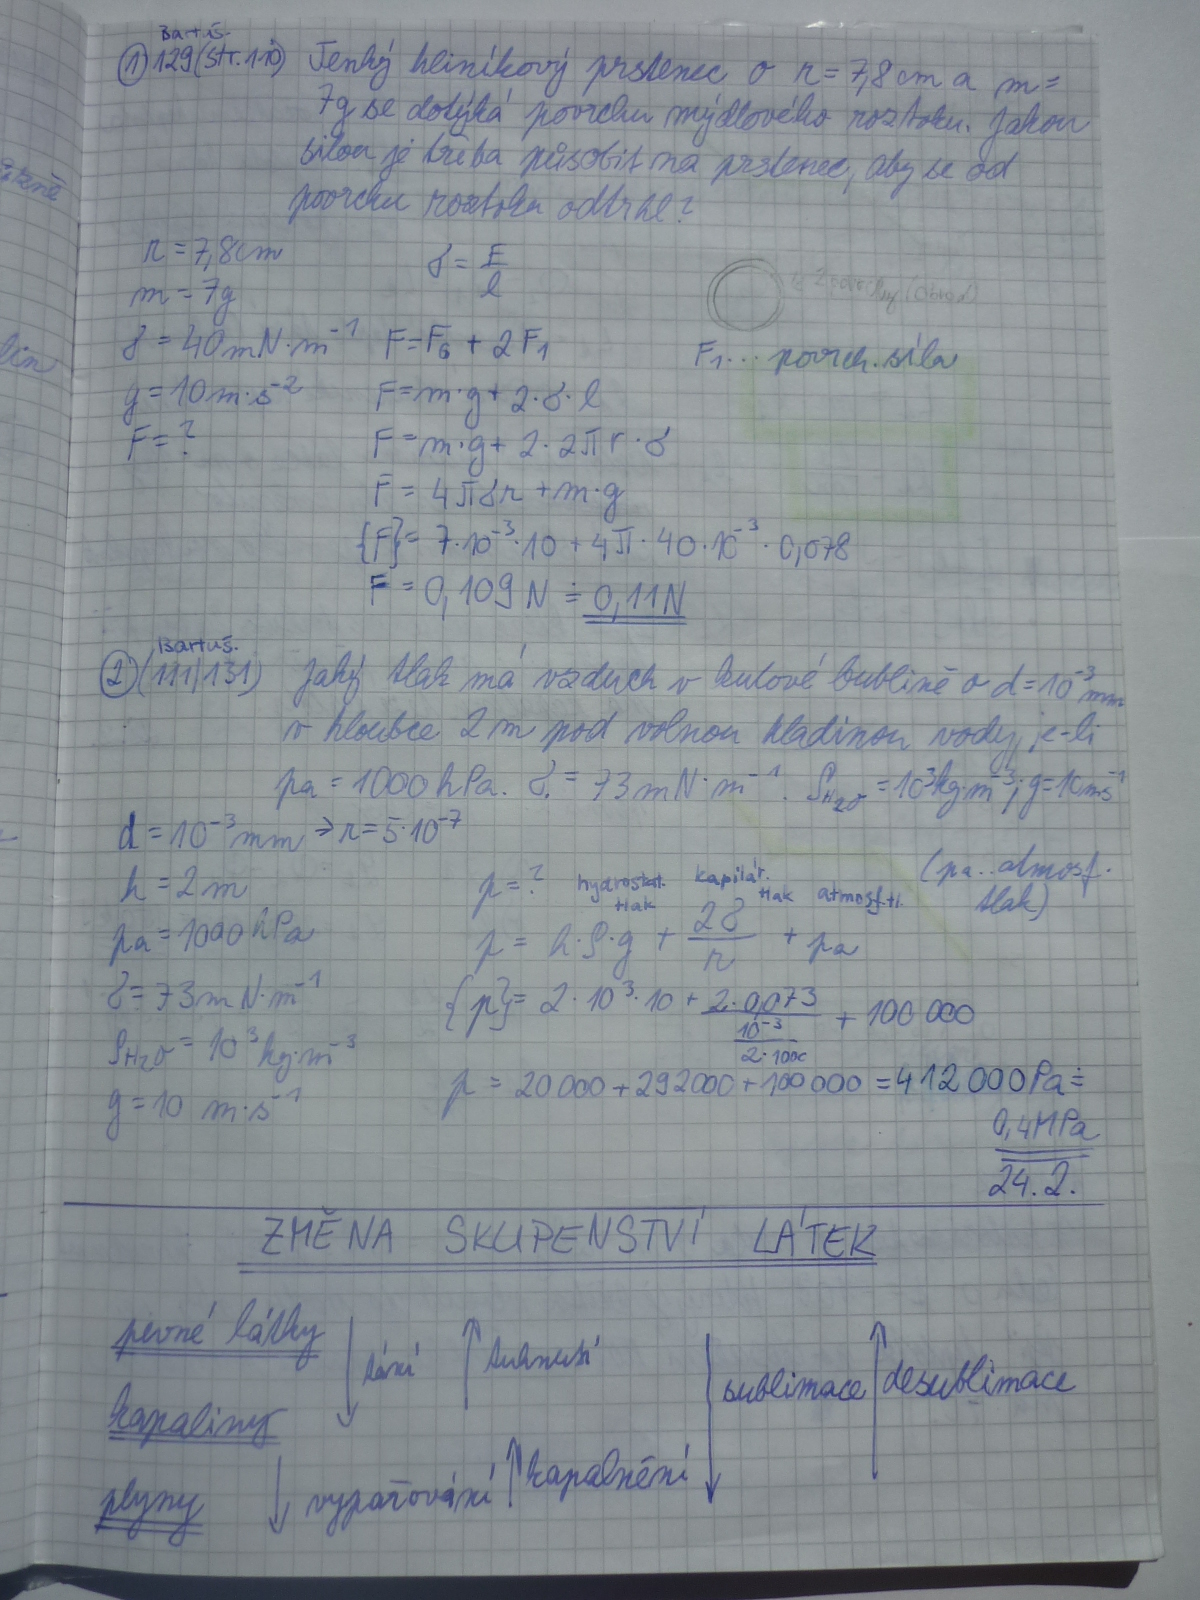 Bartuš.
① 129 (str. 110) Tenký hliníkový prstenec o r = 7,8 cm a m =
7g se dotýká povrchu mýdlového roztoku. Jakou
silou je třeba působit na prstenec, aby se od
povrchu roztoku odtrhl?
r = 7,8 cm
m = 7g
σ = 40 mN·m⁻¹
g = 10 m·s⁻²
F = ?
σ = F/l
F = F_G + 2F₁
F = m·g + 2·σ·l
F = m·g + 2·2πr·σ
F = 4πσr + m·g
{F} = 7·10⁻³·10 + 4π·40·10⁻³·0,078
F = 0,109 N ≐ 0,11 N
2 povrchy (obvod)
F₁... povrch. síla
Bartuš.
② (111/131) Jaký tlak má vzduch v kulové bublině o d = 10⁻³ mm
v hloubce 2 m pod volnou hladinou vody, je-li
pa = 1000 hPa. σ = 73 mN·m⁻¹. ρH₂O = 10³ kg·m⁻³; g = 10 m·s⁻¹
d = 10⁻³ mm ⇒ r = 5·10⁻⁷
h = 2 m
pa = 1000 hPa
σ = 73 mN·m⁻¹
ρH₂O = 10³ kg·m⁻³
g = 10 m·s⁻¹
(pa.. atmosf.
tlak)
p = ?
hydrostat. tlak kapilár. tlak atmosf. tl.
p = h·ρ·g + 2σ/r + pa
{p} = 2·10³·10 + 2·0,073/(10⁻³/2·1000) + 100 000
p = 20 000 + 292 000 + 100 000 = 412 000 Pa ≐
0,4 MPa
24. 2.
ZMĚNA SKUPENSTVÍ LÁTEK
pevné látky ↓ tání ↑ tuhnutí
↓ sublimace ↑ desublimace
kapaliny
↓ vypařování ↑ kapalnění
plyny